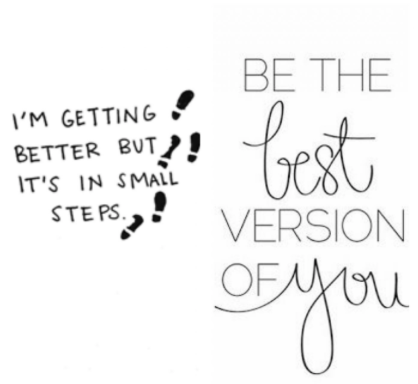 I'M GETTING
BETTER BUT
IT'S IN SMALL
STEPS.
BE THE
best
VERSION
OF you